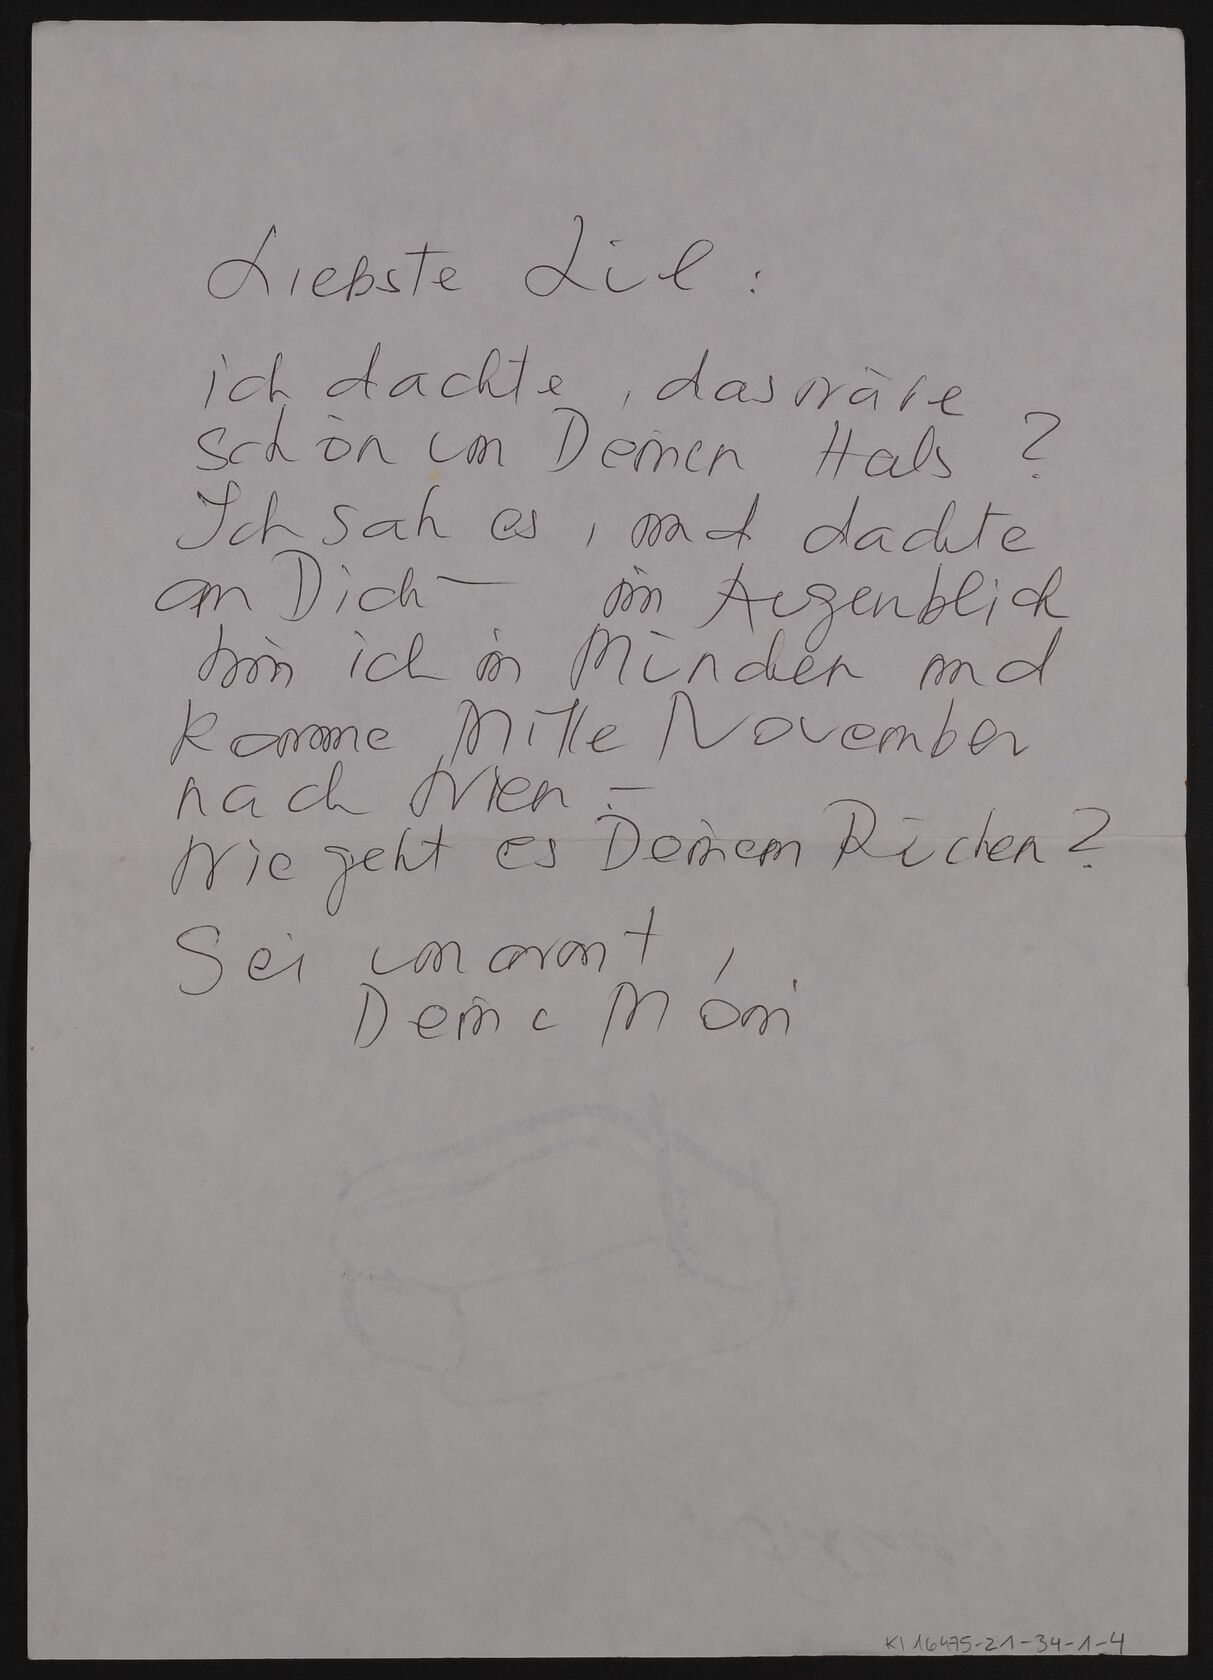 Liebste Lil :
ich dachte, das wäre
schön um Deinen Hals ?
Ich sah es, und dachte
an Dich — im Augenblick
bin ich in Minden und
komme Mitte November
nach Wien –
Wie geht es Deinem Rücken ?
Sei umarmt,
Deine Moni
KI 16475-21-34-1-4